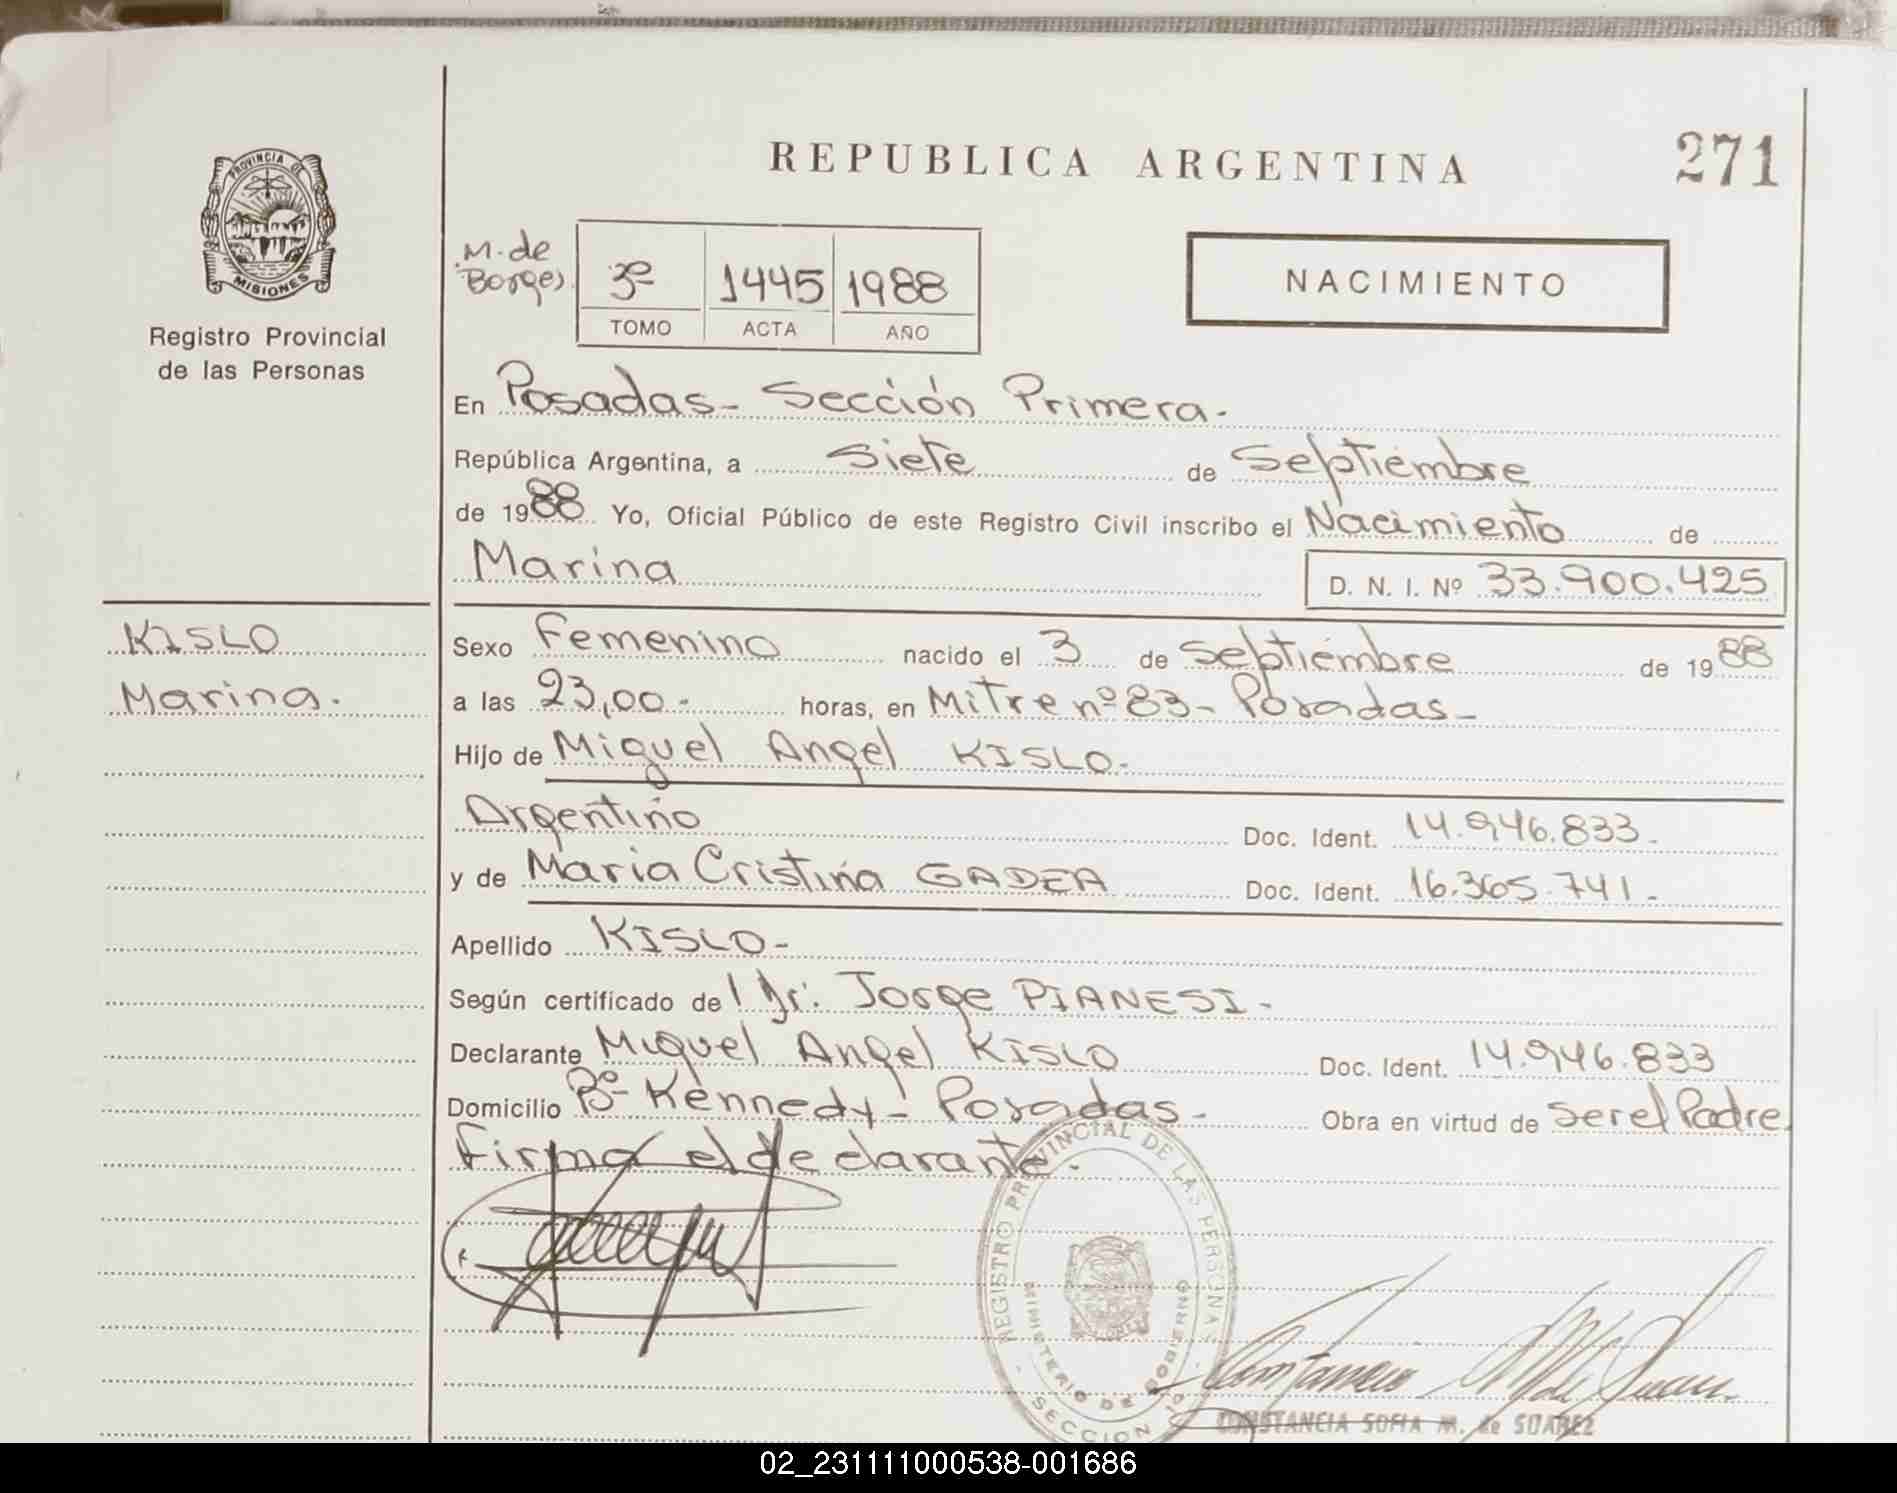 REPUBLICA ARGENTINA
271
PROVINCIA DE
MISIONES
Registro Provincial
de las Personas
M. de
Borges
3º 1445 1988
TOMO ACTA AÑO
NACIMIENTO
En Posadas - Sección Primera.
República Argentina, a Siete de Septiembre
de 1988 Yo, Oficial Público de este Registro Civil inscribo el Nacimiento de
Marina
D. N. I. Nº 33.900.425
KISLO
Marina.
Sexo Femenino nacido el 3 de Septiembre de 1988
a las 23,00- horas, en Mitre nº 83- Posadas-
Hijo de Miguel Angel KISLO-
Argentino Doc. Ident. 14.946.833.-
y de Maria Cristina GADEA Doc. Ident. 16.365.741.-
Apellido KISLO-
Según certificado de Dr. Jorge PIANESI-
Declarante Miguel Angel Kislo Doc. Ident. 14.946.833
Domicilio Bº Kennedy - Posadas- Obra en virtud de Ser el Padre.
Firma el declarante.
REGISTRO PROVINCIAL DE LAS PERSONAS
MINISTERIO DE GOBIERNO
SECCION
CONSTANCIA SOFIA M. de SUAREZ
02_231111000538-001686